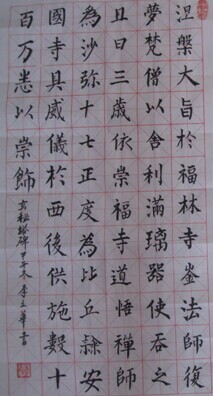 涅槃大旨於福林寺崟法師復
夢梵僧以舍利滿璃器使吞之
且曰三歲依崇福寺道悟禪師
為沙弥十七正度為比丘隸安
國寺具威儀於西後供施數十
百万悉以崇飾
玄秘塔碑甲午冬李立華書